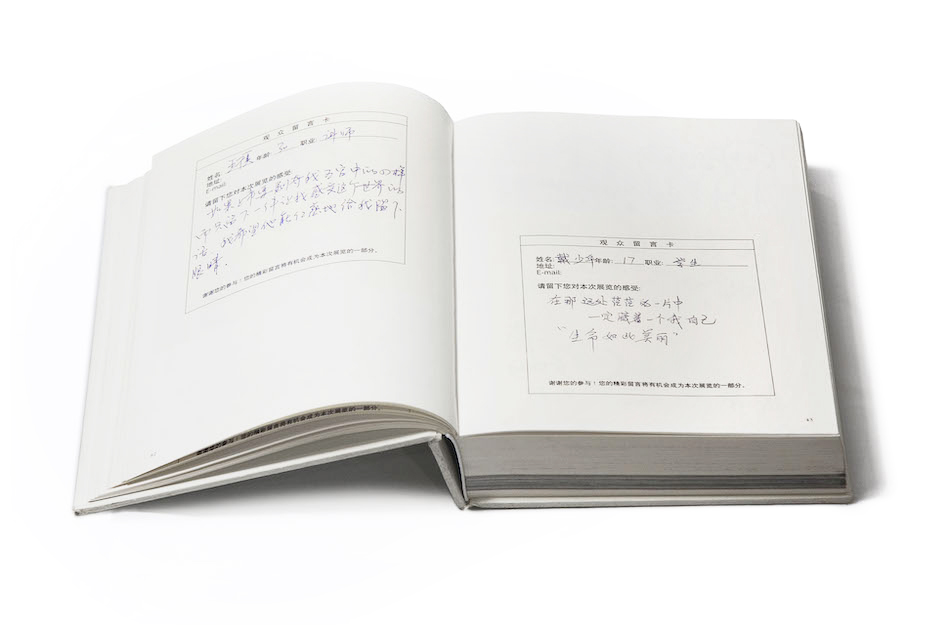 观众留言卡
姓名: 年龄: 30 职业: 讲师
地址:
E-mail:
请留下您对本次展览的感受:
如果上帝要剥夺我五官中的四样
而只留下一样让我感受这个世界的
话,我希望他能仁慈地给我留下
眼睛.
谢谢您的参与!您的精彩留言将有机会成为本次展览的一部分。
谢谢您的参与!您的精彩留言将有机会成为本次展览的一部分。
观众留言卡
姓名: 戴少年 年龄: 17 职业: 学生
地址:
E-mail:
请留下您对本次展览的感受:
在那远处茫茫的一片中
一定藏着一个我自己
“生命如此美丽”
谢谢您的参与!您的精彩留言将有机会成为本次展览的一部分。